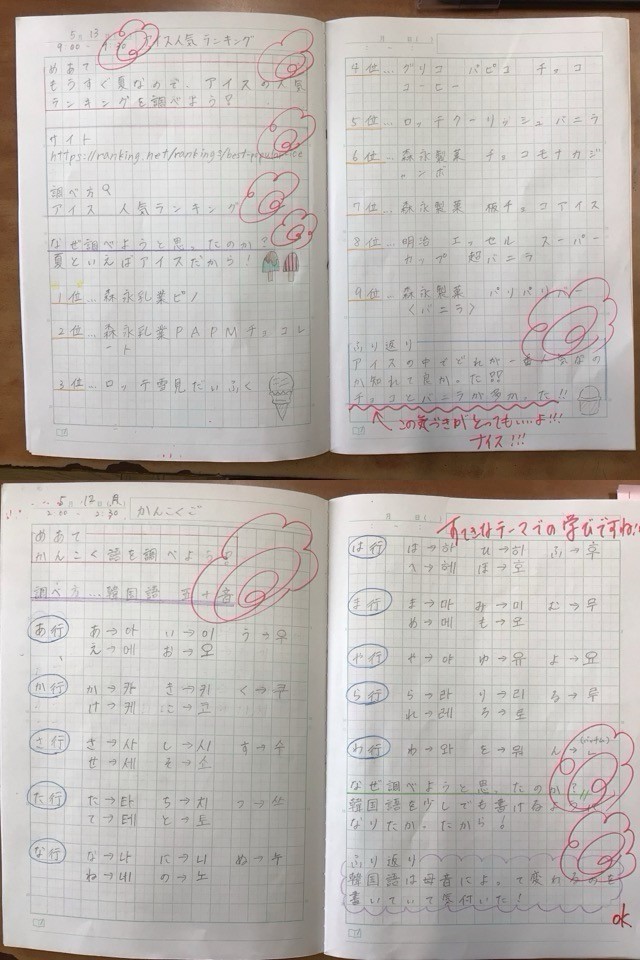 5月 13
9:00 - 9:30 アイス人気ランキング
めあて
もうすぐ夏なので、アイスの人気
ランキングを調べよう?
サイト
https://ranking.net/rankings/best-popular-ice
調べ方
アイス 人気ランキング
なぜ調べようと思ったのか?
夏といえばアイスだから!
1位…森永乳業ピノ
2位…森永乳業PAPMチョコレ
ート
3位…ロッテ雪見だいふく
月 日( )
4位…グリコ パピコ チョコ
コーヒー
5位…ロッテクーリッシュバニラ
6位…森永製菓 チョコモナカジ
ャンボ
7位…森永製菓 板チョコアイス
8位…明治 エッセル スーパー
カップ 超バニラ
9位…森永製菓 パリパリバー
〈バニラ〉
ふり返り
アイスの中でどれが一番人気なの
か知れて良かった!!
チョコとバニラが多かった!!
この気づきがとってもいいよ!!!
ナイス!!!
5月 12日 月
2:00 - 2:30 かんこくご
めあて
かんこく語を調べよう?
調べ方…韓国語 五十音
あ行 あ→아 い→이 う→우
え→에 お→오
か行 か→카 き→키 く→쿠
け→케 こ→코
さ行 さ→사 し→시 す→수
せ→세 そ→소
た行 た→타 ち→치 つ→쓰
て→테 と→토
な行 な→나 に→니 ぬ→누
ね→네 の→노
月 日( )
すてきなテーマでの学びですね!!
は行 は→하 ひ→히 ふ→후
へ→헤 ほ→호
ま行 ま→마 み→미 む→무
め→메 も→모
や行 や→야 ゆ→유 よ→요
ら行 ら→라 り→리 る→루
れ→레 ろ→로
わ行 わ→와 を→워 ん→
(パッチム)
なぜ調べようと思ったのか?
韓国語を少しでも書けるよう
なりたかったから!
ふり返り
韓国語は母音によって変わるのを
書いていて気付いた!
ok